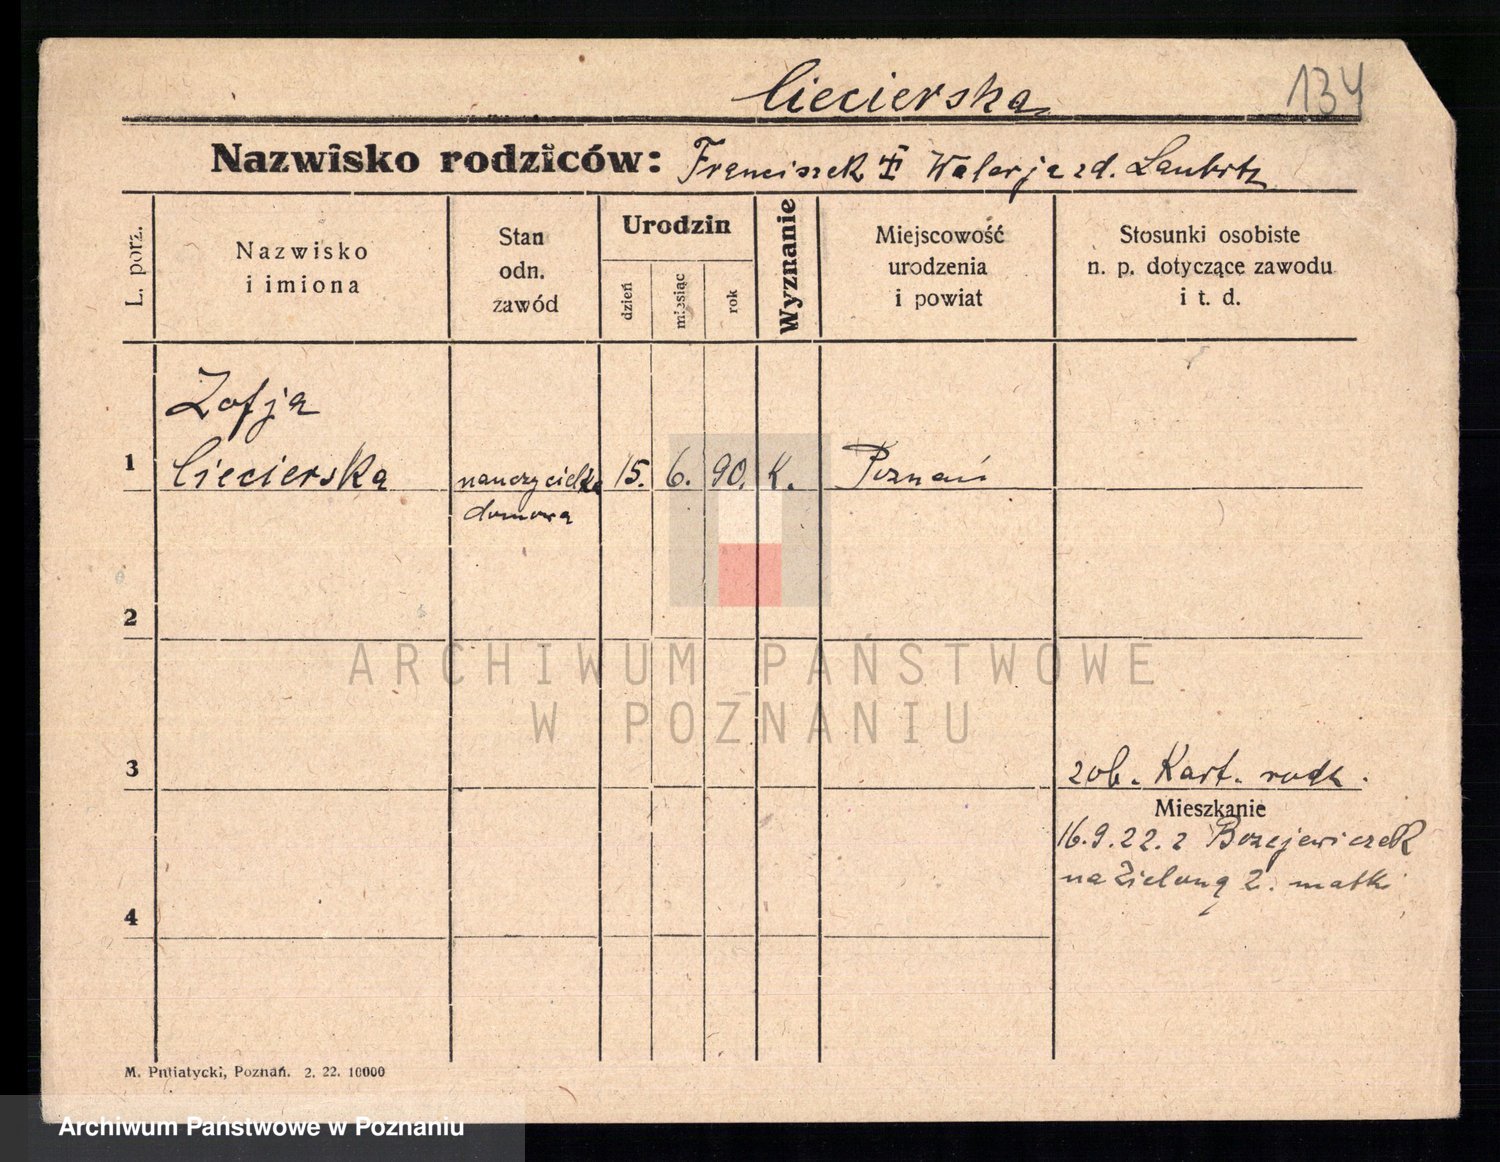 Ciecierska
134
Nazwisko rodziców: Franciszek Walerja zd.
L. porz.
Nazwisko
i imiona
Stan
odn.
zawód
Urodzin
dzień
miesiąc
rok
Wyznanie
Miejscowość
urodzenia
i powiat
Stosunki osobiste
n. p. dotyczące zawodu
i t. d.
Zofja
1 Ciecierska nauczycielka 15. 6. 90. K. Poznań
domowa
2
ARCHIWUM PAŃSTWOWE
W POZNANIU
3 zob. Kart. rodz.
Mieszkanie
16.9.22. z Bożejewiczek
na Zieloną 2. matki
4
M. Putiatycki, Poznań. 2. 22. 10000
Archiwum Państwowe w Poznaniu